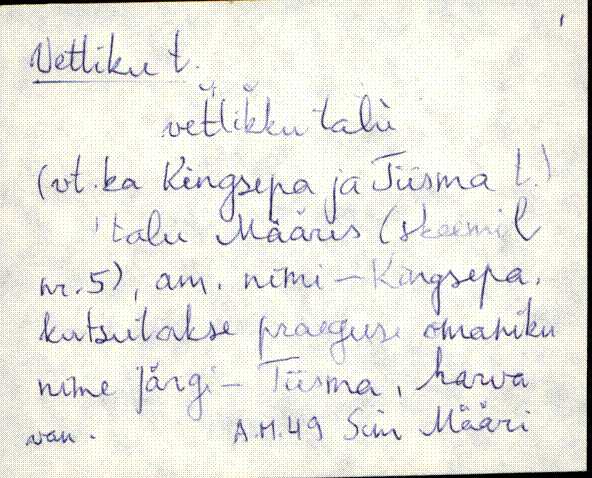 Vettiku t.
vettikku talù
(vt.ka Kingsepa ja Tiisma t.)
'talu Määris (skeemil
nr.5), am. nimi - Kingsepa,
kutsutakse praeguse omaniku
nime järgi - Tiisma, harva
van. A.M.49 Sim Määri